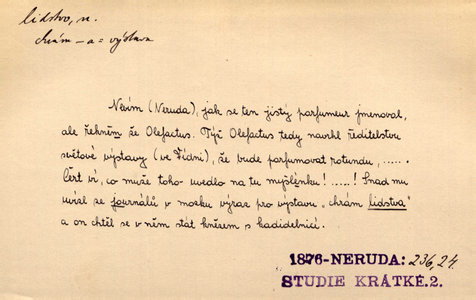 lidstvo, n.
chrám –a = výstava
Nevím (Neruda), jak se ten jistý parfumeur jmenoval,
ale řekněm že Olefactus. Týž Olefactus tedy navrhl ředitelstvu
světové výstavy (ve Vídni), že bude parfumovat rotundu, .....
Čert ví, co může toho uvedlo na tu myšlénku! .....! Snad mu
uvízl ze journálů v mozku výraz pro výstavu "chrám lidstva"
a on chtěl se v něm stát knězem s kadidelnicí.
1876-NERUDA: 236,24.
STUDIE KRÁTKÉ.2.